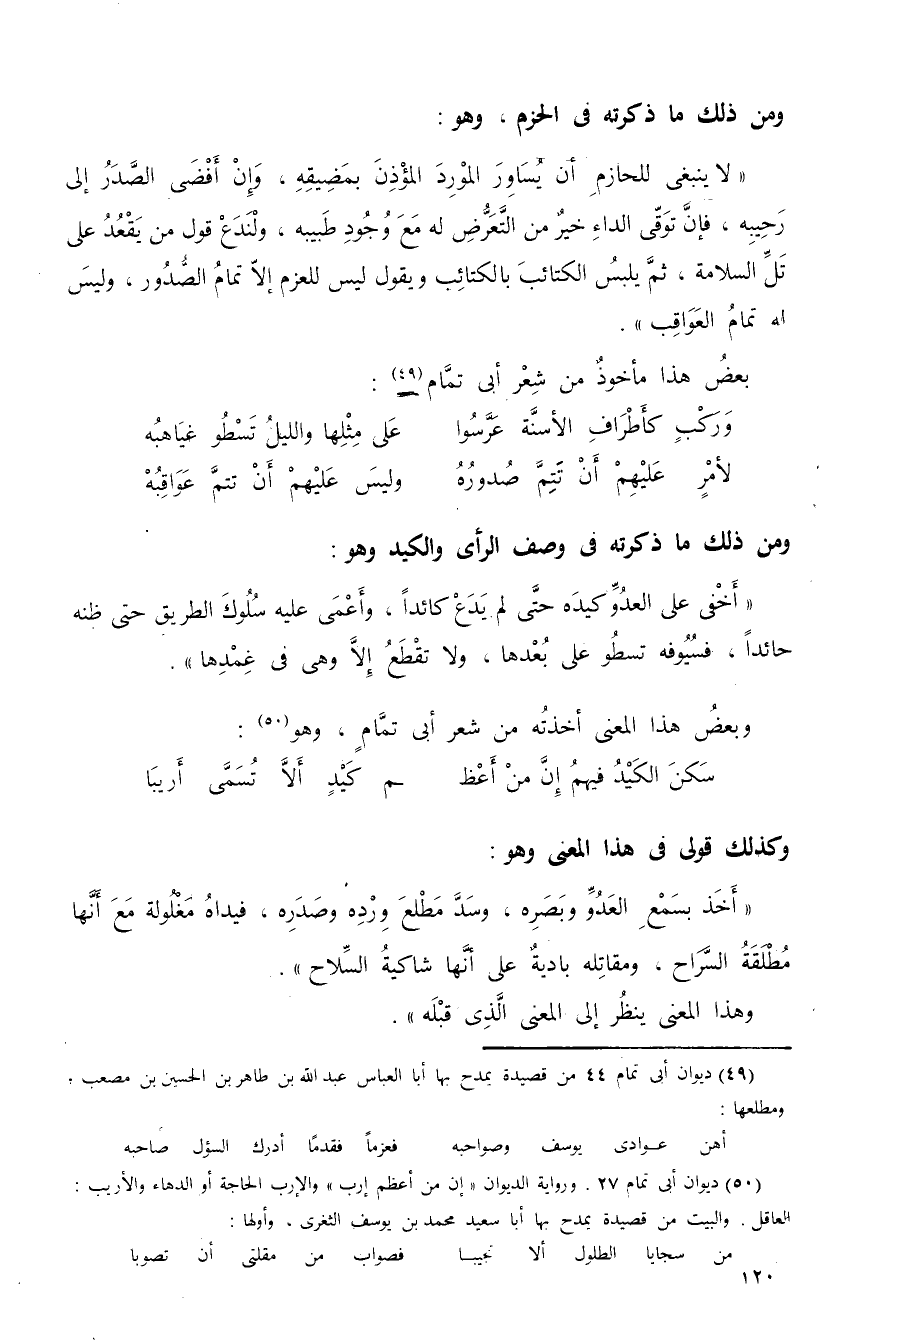 ومن ذلك ما ذكرته فى الحزم ، وهو :
« لا ينبغى للحازمِ أن يُسَاورَ المَوْرِدَ المُؤْذِنَ بمَضِيقِهِ ، وَإِنْ أَفْضَى الصَّدَرُ إلى
رَحِيبِه ، فإنَّ تَوَقّى الداءِ خيرٌ من التَّعَرُّضِ له مَعَ وُجُودِ طَبيبه ، ولْنَدَعْ قول من يَقْعُدُ على
تَلِّ السلامة ، ثمَّ يلبسُ الكتائبَ بالكتائِب ويقول ليس للعزم إلاّ تمامُ الصُّدُور ، وليسَ
له تمامُ العَوَاقِب » .
بعضُ هذا مأخوذٌ من شِعْر أبى تمَّام(٤٩) :
وَرَكْبٍ كَأَطْرَافِ الأسنَّة عَرَّسُوا    عَلى مِثْلِها والليلُ تَسْطُو غيَاهبُه
لأمْرٍ عَلَيْهِمْ أَنْ تَتِمَّ صُدورُهُ    وليسَ عَلَيْهمْ أَنْ تتمَّ عَوَاقِبُهْ
ومن ذلك ما ذكرته فى وصف الرأى والكيد وهو :
« أَخْفى على العدُوِّ كيدَه حتَّى لم يَدَعْ كائداً ، وأَعْمَى عليه سُلُوكَ الطريق حتى ظنه
حائداً ، فسُيُوفه تسطُو على بُعْدها ، ولا تقْطَعُ إلاَّ وهى فى غِمْدِها » .
وبعضُ هذا المعنى أخذتُه من شعر أبى تمَّامٍ ، وهو(٥٠) :
سَكنَ الكَيْدُ فيهمُ إِنَّ منْ أَعْظ    ـم كَيْدٍ ألاَّ تُسَمَّى أَريبَا
وكذلك قولى فى هذا المعنى وهو :
« أَخَذ بسَمْعِ العَدُوِّ وبَصَرِه ، وسَدَّ مَطْلعَ وِرْدِه وصَدَرِه ، فيداهُ مَغْلُولة مَعَ أَنَّها
مُطْلَقَةُ السَّرَاح ، ومقاتِله باديةٌ على أنَّها شاكيةُ السِّلاح » .
وهذا المعنى ينظُر إلى المعنى الَّذِى قبْلَه » .
(٤٩) ديوان أبى تمام ٤٤ من قصيدة يمدح بها أبا العباس عبد الله بن طاهر بن الحسين بن مصعب ،
ومطلعها :
أهن عـوادى يوسف وصواحبه    فعزماً فقدمًا أدرك السؤل صاحبه
(٥٠) ديوان أبى تمام ٢٧ . ورواية الديوان « إن من أعظم إرب » والإرب الحاجة أو الدهاء والأريب :
العاقل . والبيت من قصيدة يمدح بها أبا سعيد محمد بن يوسف الثغرى ، وأولها :
من سجايا الطلول ألا تجيبـا    فصواب من مقلتى أن تصوبا
١٢٠